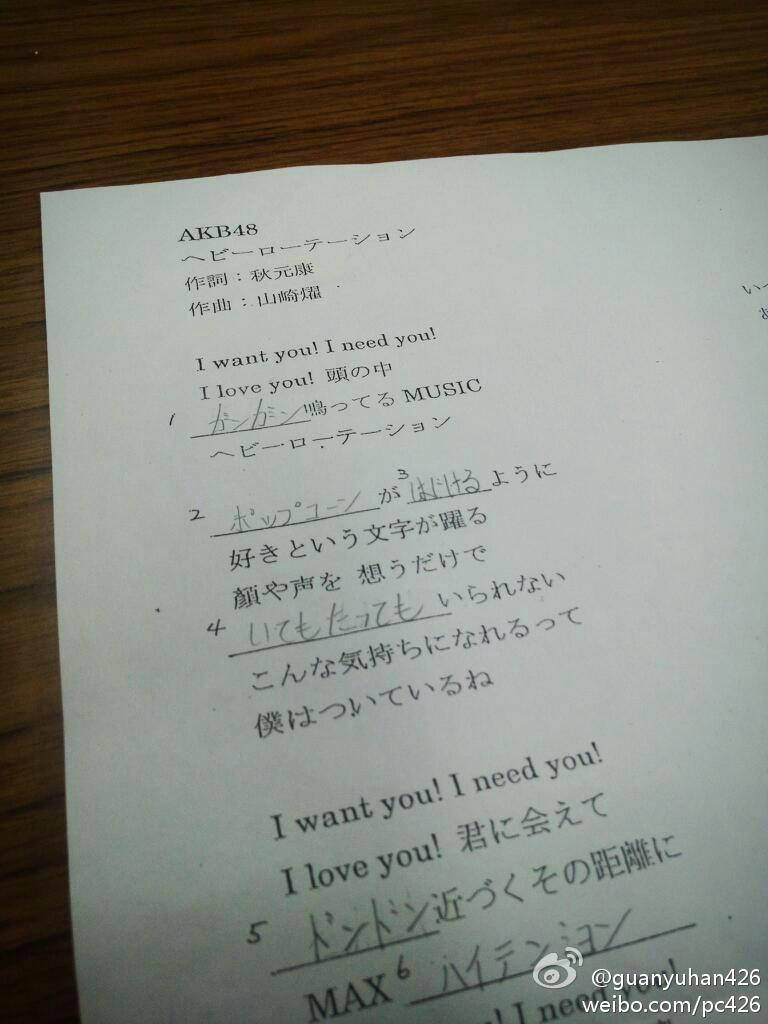 AKB48
ヘビーローテーション
作詞：秋元康
作曲：山崎燿
I want you! I need you!
I love you! 頭の中
1 ガンガン鳴ってる MUSIC
ヘビーローテーション
2 ポップコーンが 3 はじけるように
好きという文字が躍る
顔や声を 想うだけで
4 いてもたってもいられない
こんな気持ちになれるって
僕はついているね
I want you! I need you!
I love you! 君に会えて
5 ドンドン近づくその距離に
MAX 6 ハイテンション
I need you!
い
@guanyuhan426
weibo.com/pc426